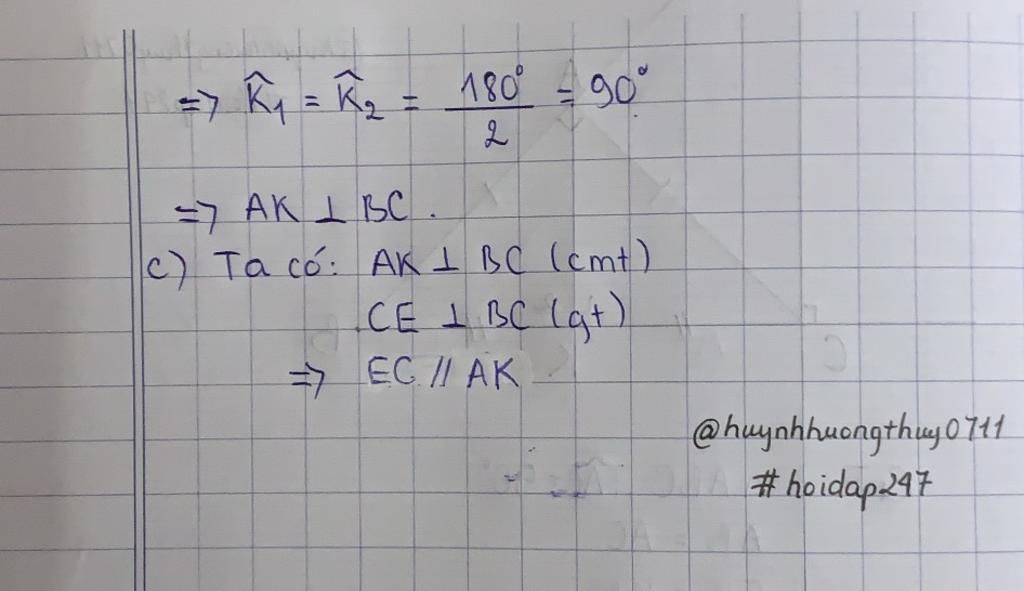 => K̂₁ = K̂₂ = 180°/2 = 90°
=> AK ⊥ BC.
c) Ta có: AK ⊥ BC (cmt)
CE ⊥ BC (gt)
=> EC // AK
@huynhhuongthuy0711
#hoidap247